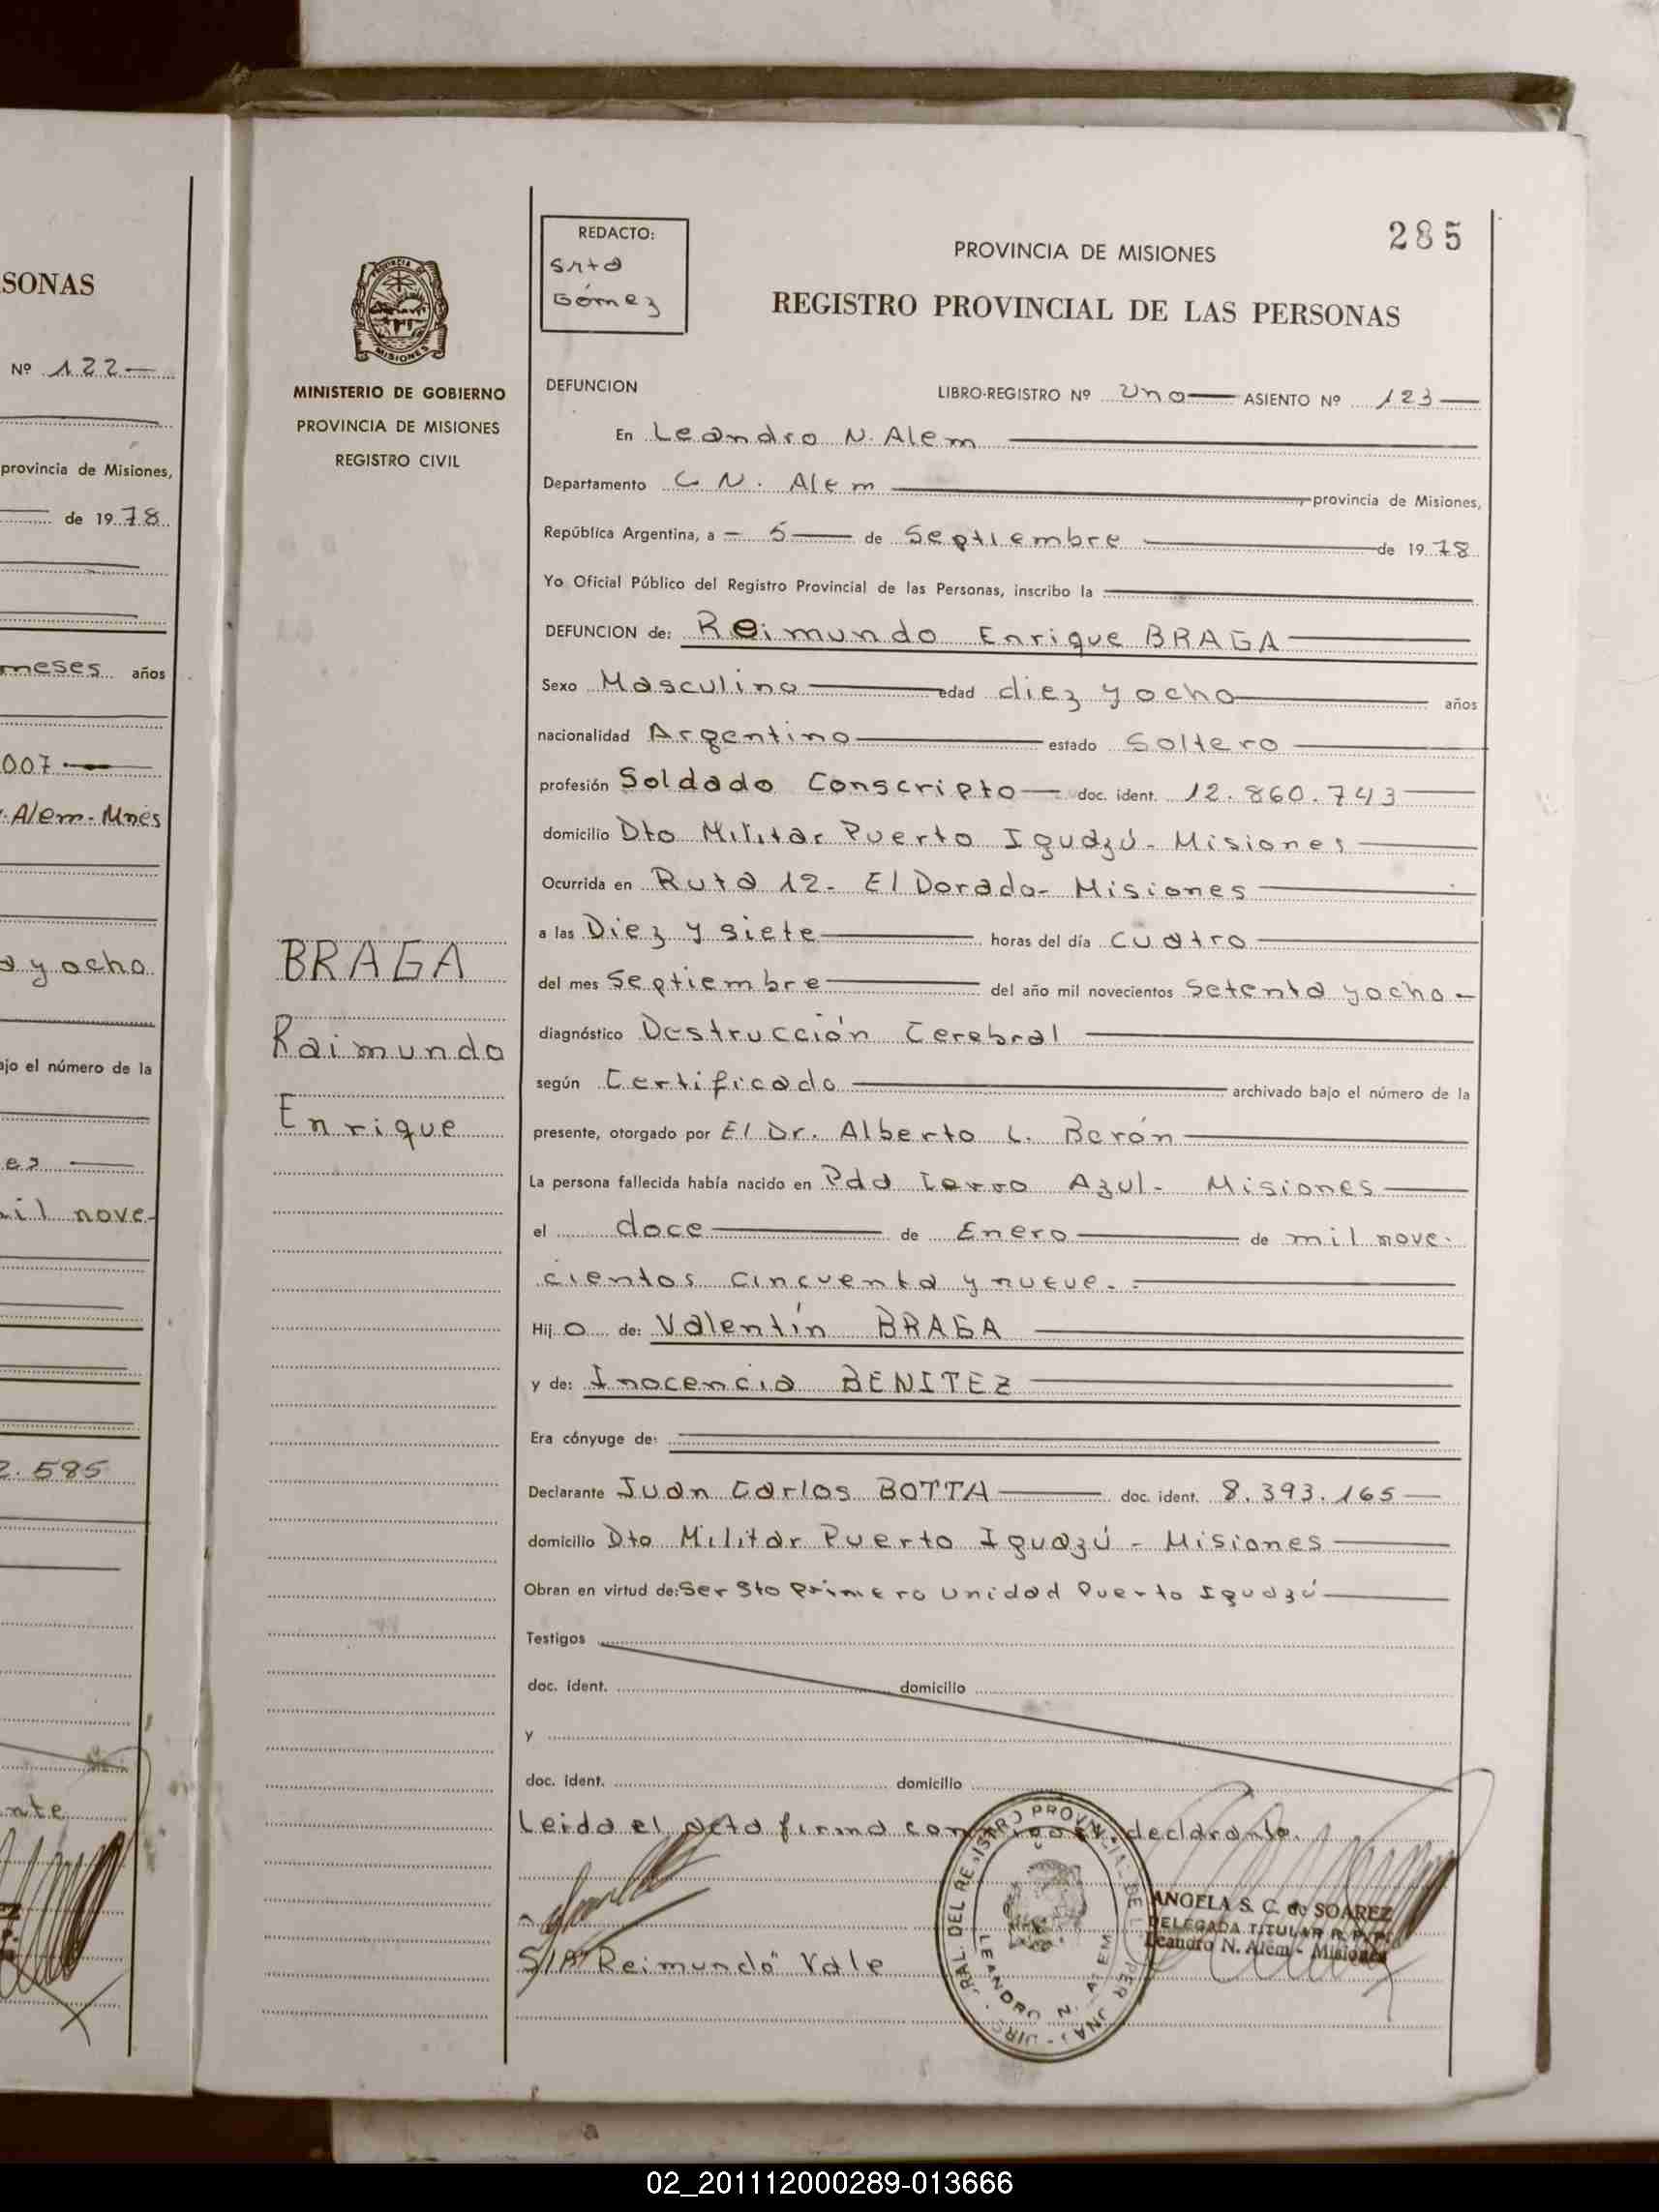 SONAS
Nº 122
provincia de Misiones,
de 1978
meses años
007
Alem - Mnes
a y ocho
ajo el número de la
es
il nove-
2.585
nte
MINISTERIO DE GOBIERNO
PROVINCIA DE MISIONES
REGISTRO CIVIL
BRAGA
Raimundo
Enrique
REDACTO:
Srta
Gómez
285
PROVINCIA DE MISIONES
REGISTRO PROVINCIAL DE LAS PERSONAS
DEFUNCION LIBRO-REGISTRO Nº Uno ASIENTO Nº 123
En Leandro N. Alem
Departamento L N. Alem provincia de Misiones,
República Argentina, a - 5 - de Septiembre de 1978
Yo Oficial Público del Registro Provincial de las Personas, inscribo la
DEFUNCION de: Reimundo Enrique BRAGA
Sexo Masculino edad diez y ocho años
nacionalidad Argentino estado Soltero
profesión Soldado Conscripto doc. ident. 12.860.743
domicilio Dto Militar Puerto Iguazú - Misiones
Ocurrida en Ruta 12 - El Dorado - Misiones
a las Diez y siete horas del día cuatro
del mes Septiembre del año mil novecientos Setenta y ocho -
diagnóstico Destrucción Cerebral
según Certificado archivado bajo el número de la
presente, otorgado por El Dr. Alberto L. Berón
La persona fallecida había nacido en Pda Cerro Azul - Misiones
el doce de Enero de mil nove-
cientos cincuenta y nueve.-
Hijo de: Valentín BRAGA
y de: Inocencia BENITEZ
Era cónyuge de:
Declarante Juan Carlos BOTTA doc. ident. 8.393.165
domicilio Dto Militar Puerto Iguazú - Misiones
Obran en virtud de: Ser Sto Primero Unidad Puerto Iguazú
Testigos
doc. ident. domicilio
y
doc. ident. domicilio
Leida el acta firma declarante.
ANGELA S. C. de SOAREZ
DELEGADA TITULAR R. P. P.
Leandro N. Alem - Misiones
S/A "Reimundo" Vale
LEANDRO N. ALEM
02_201112000289-013666